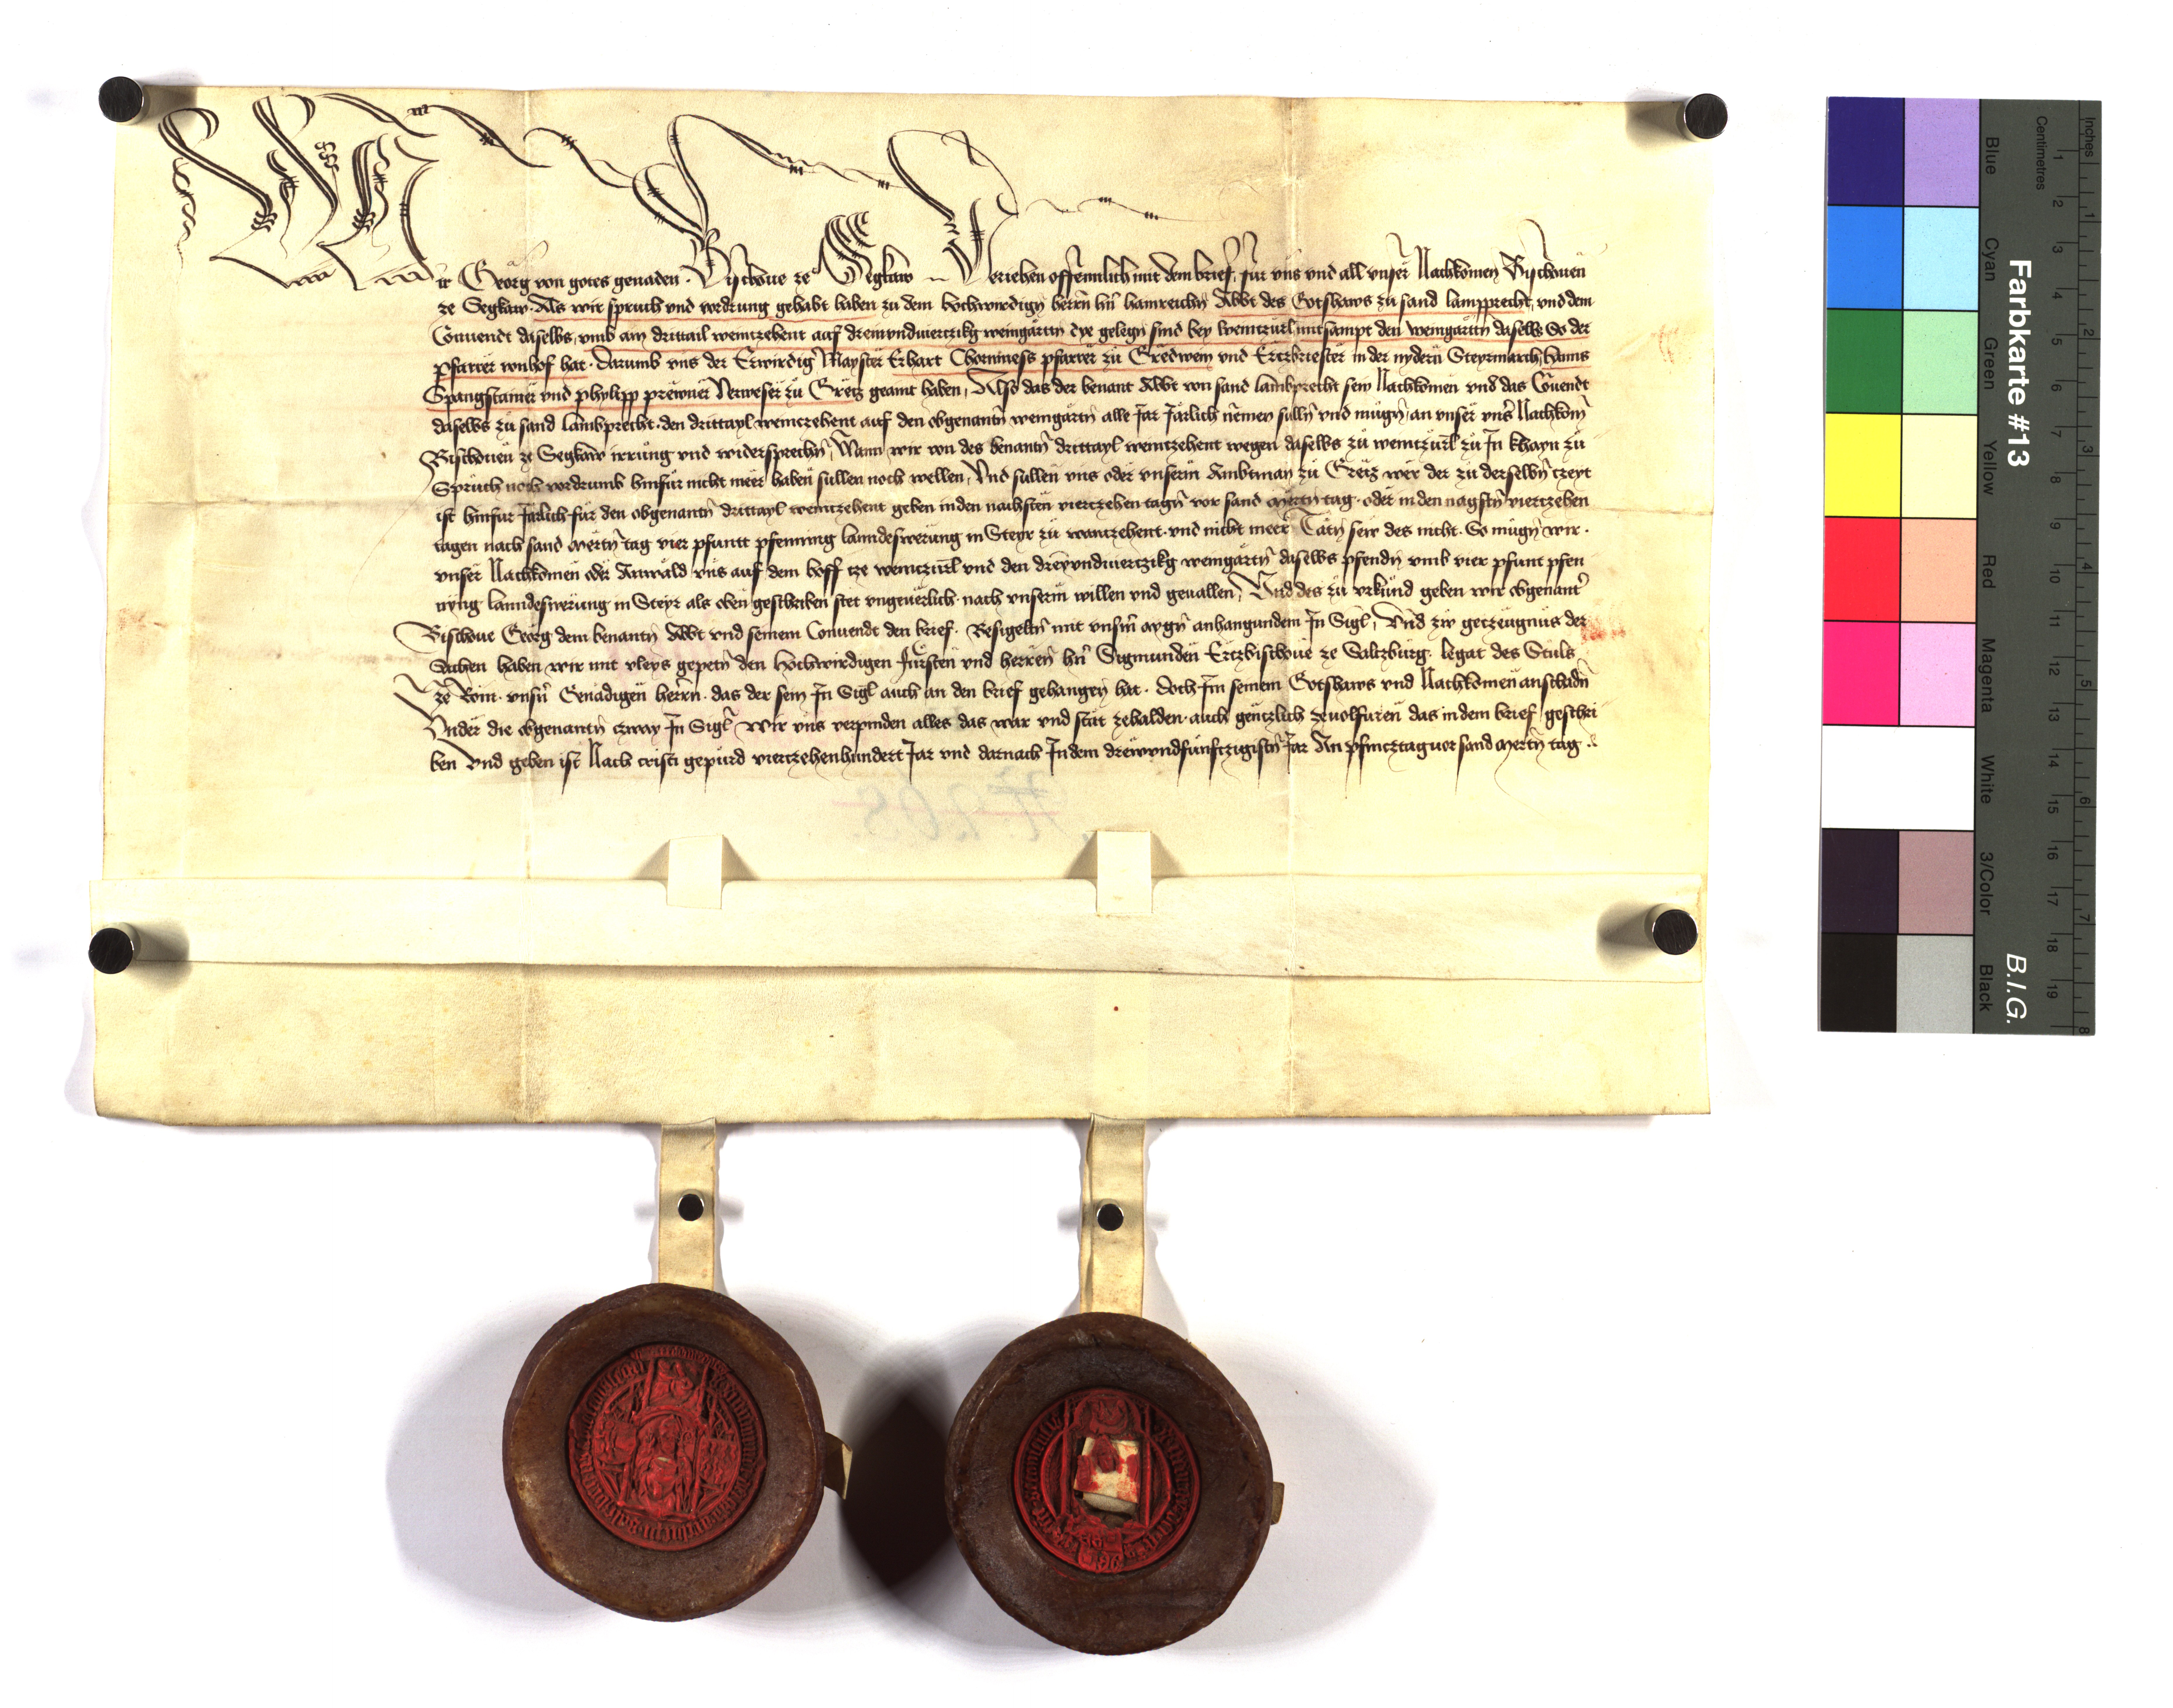 Wir Georg von gotes genaden. Bischoue ze Segkaw Veriehen offennlich mit dem brief, für vns vnd all vnser Nachkomen Bischouen
ze Segkaw. Als wir spruch vnd vordrung gehabt haben zu dem hochwirdign herrn hn̄ hainreichn Abbt des Gotshaws zu sand lampprecht, vnd dem
Conuendt daselbs, vmb ain drittail weintzehent auf drewvndviertzikg weingärtn dye gelegn sind bey weintzürl mitsampt den weingärttn daselbs So der
pfarrer vonhof hat. Darumb vns der Erwirdig Mayster Erhart Chorniness pfarrer zu Gredwein vnd Ertzbriester in der nydern Steyrmarch, hanns
Spangstainer vnd phylipp prewner Verweser zu Gretz geaint haben, Also das der benant Abbt von sand lambprecht sein Nachkömen vnd das Couendt
daselbs zu sand lambprecht. den drittayl weintzehent auf den obgenantn weingärtn alle Jar Järlich nemen sulln vnd mügn, an vnser vns̄ Nachkomn̄
Bischouen ze Segkaw irrung vnd widersprechn, Wann wir von des benantn drittayl weintzehent wegen daselbs zu weintzürl zu In khayn zu
Spruch noch vordrumb hinfür nicht meer haben sullen noch wellen, Vnd sullen vns oder vnserm Ambtman zu Gretz wer der zu derselbn tzeyt
ist hinfur Järlich für den obgenantn drittayl weintzehent geben inden nachsten viertzehen tagn vor sand mertn tag. oder in den nagstn viertzehen
tagen nach sand mertn tag vier pfuntt pfenning lanndeswerung in Steyr zu weintzehent. vnd nicht meer Tätn sew des nicht. So mügn wir.
vnser Nachkomen oder Anwald vns auf dem hoff tze weintzürl vnd den drewvndviertzikg weingärtn daselbs pfendn vmb vier pfunt pfen
nyng lanndeswerung in Steyr als oben geschriben stet vngeuerlich. nach vnserm willen vnd geuallen, Vnd des zu vrkund geben wir obgenant
Bischoue Georg dem benantn Abbt vnd seinem Conuendt den brief. Besigeltn mit vnsm̄ aygn anhangundem In Sigl, Vnd zw getzeugnüs der
Sachen haben wir mit vleys gepetn den hochwirdigen fürsten vnd herren hn̄ Sigmunden Ertzbischoue ze Saltzburg. legat des Stuls
ze Rom. vnsn̄ Genädigen herrn. das der sein In Sigl auch an den brief gehangen hat. doch Im seinem Gotshaws vnd Nachkomen anschadn
Vnder die obgenantn tzway In Sigl wir vns verpinden alles das war vnd stät zehalden. auch gentzlich zeuolfuren das in dem brief geschri
ben Vnd geben ist Nach cristi gepurd viertzehenhundert Jar vnd darnach In dem drewvndfunftzigistn Jar An pfincztag vor sand mertn tag ..
N. 208.
Farbkarte #13
B.I.G.
Inches
Centimetres
1 2 3 4 5 6 7 8 9 10 11 12 13 14 15 16 17 18 19
1 2 3 4 5 6 7 8
Blue
Cyan
Green
Yellow
Red
Magenta
White
3/Color
Black